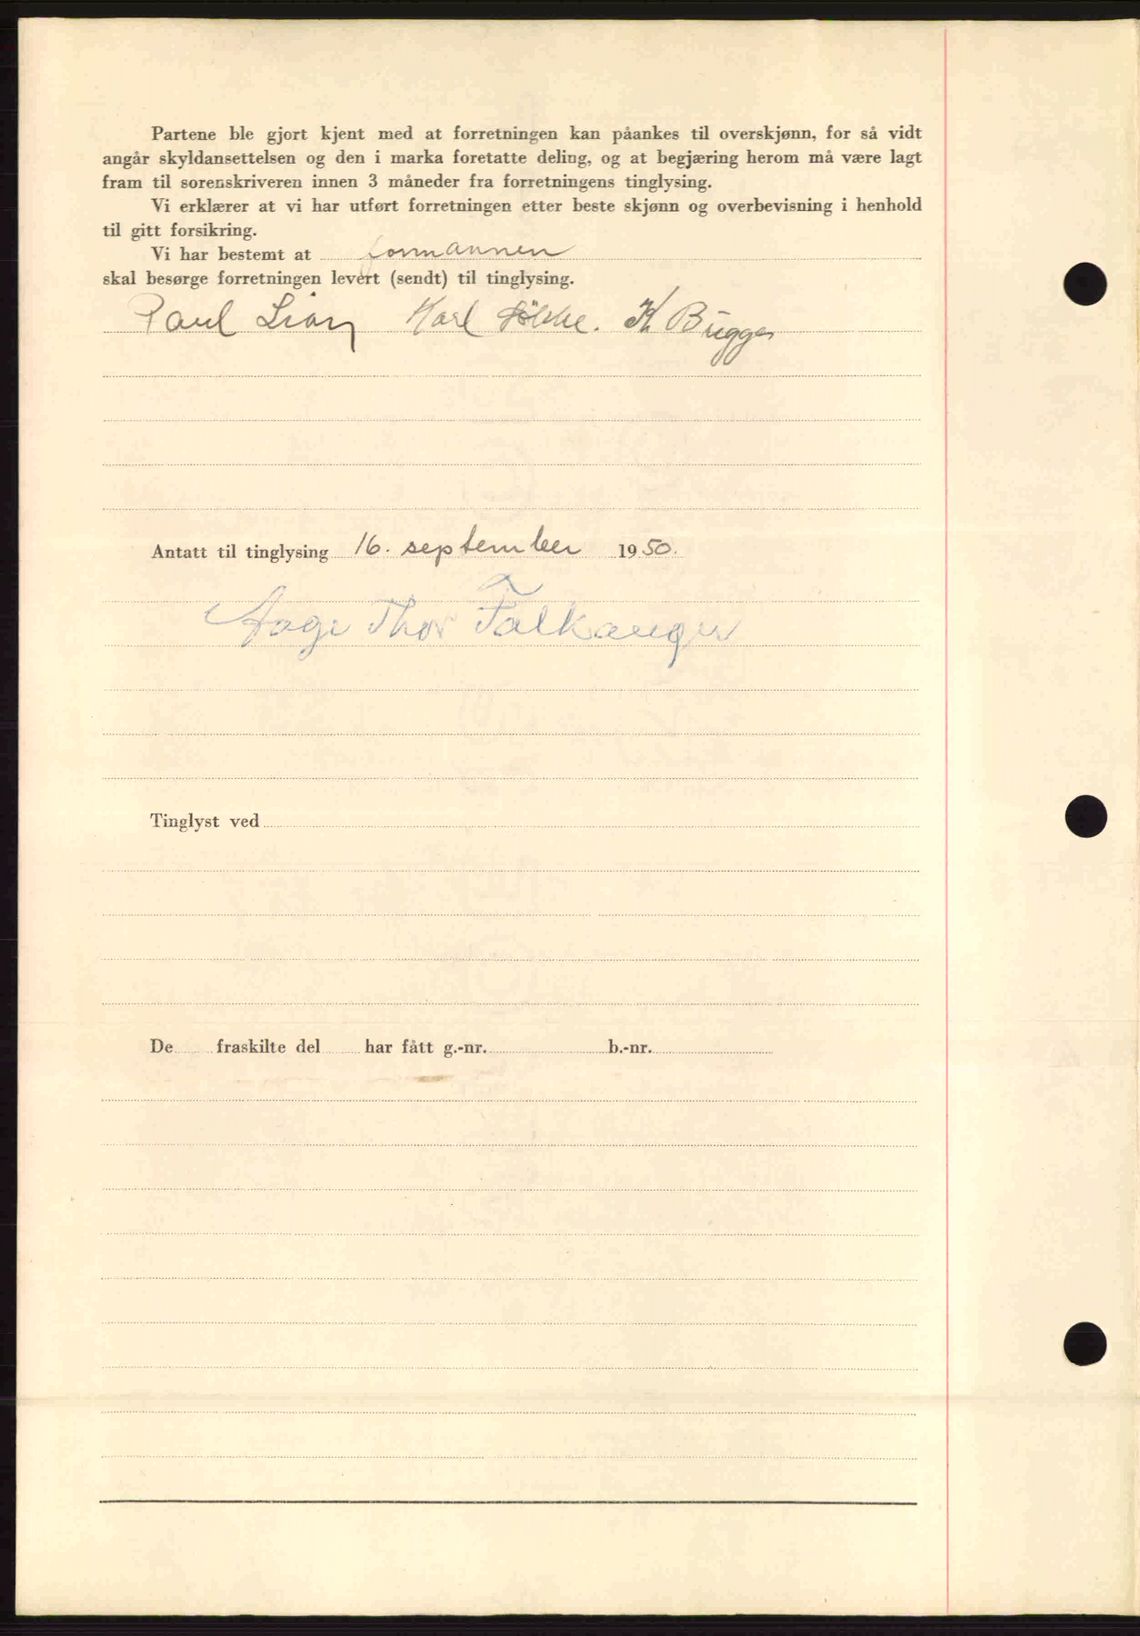 Partene ble gjort kjent med at forretningen kan påankes til overskjønn, for så vidt
angår skyldansettelsen og den i marka foretatte deling, og at begjæring herom må være lagt
fram til sorenskriveren innen 3 måneder fra forretningens tinglysing.
Vi erklærer at vi har utført forretningen etter beste skjønn og overbevisning i henhold
til gitt forsikring.
Vi har bestemt at formannen
skal besørge forretningen levert (sendt) til tinglysing.
Paul Karl K. Bugge
Antatt til tinglysing 16. september 1950.
Aage Thor Falkanger
Tinglyst ved
De fraskilte del har fått g.-nr. b.-nr.